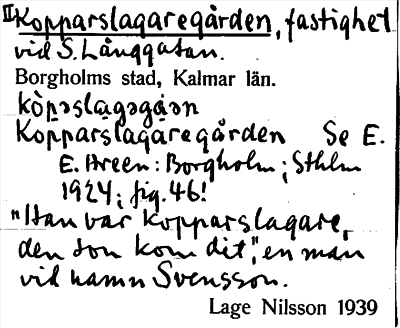 II Kopparslagaregården, fastighet
vid S. Långgatan.
Borgholms stad, Kalmar län.
kòpəslagəgáən
Kopparslagaregården Se E.
E. Areen: Borgholm; Sthlm
1924; fig. 46!
"Han var kopparslagare,
den som kom dit", en man
vid namn Svensson.
Lage Nilsson 1939